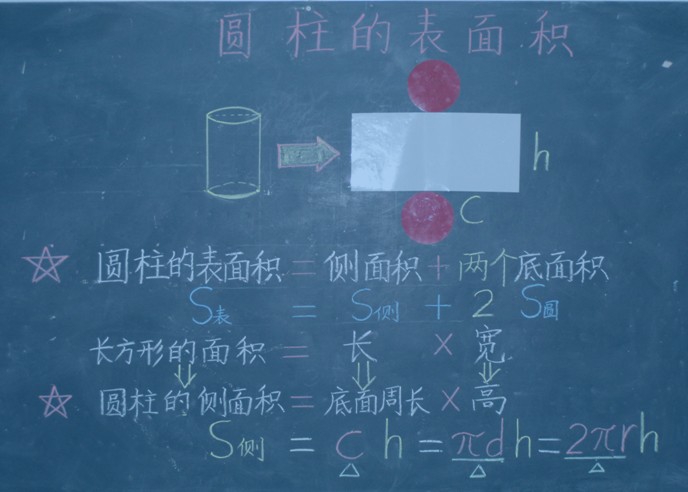 圆柱的表面积
h
C
☆ 圆柱的表面积 = 侧面积 + 两个底面积
S表 = S侧 + 2 S圆
长方形的面积 = 长 × 宽
☆ 圆柱的侧面积 = 底面周长 × 高
S侧 = c h = πd h = 2πr h